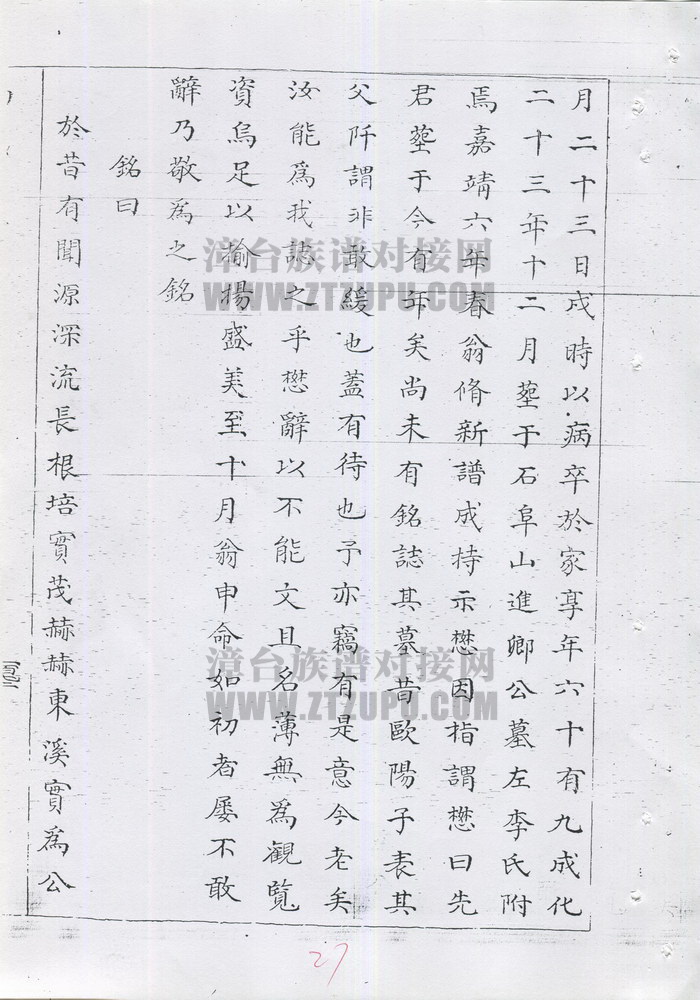 月二十三日戌時以病卒於家享年六十有九成化
二十三年十二月塟于石阜山進卿公墓左李氏附
焉嘉靖六年春翁脩新譜成持示懋因指謂懋曰先
君塟于今有年矣尚未有銘誌其墓昔歐陽子表其
父阡謂非敢緩也蓋有待也予亦竊有是意今老矣
汝能爲我誌之乎懋辭以不能文且名薄無爲觀覧
資烏足以揄揚盛美至十月翁申命如初者屡不敢
辭乃敬為之銘
銘曰
於昔有聞源深流長根培實茂赫赫東溪實爲公
漳台族谱对接网
WWW.ZTZUPU.COM
漳台族谱对接网
WWW.ZTZUPU.COM
27